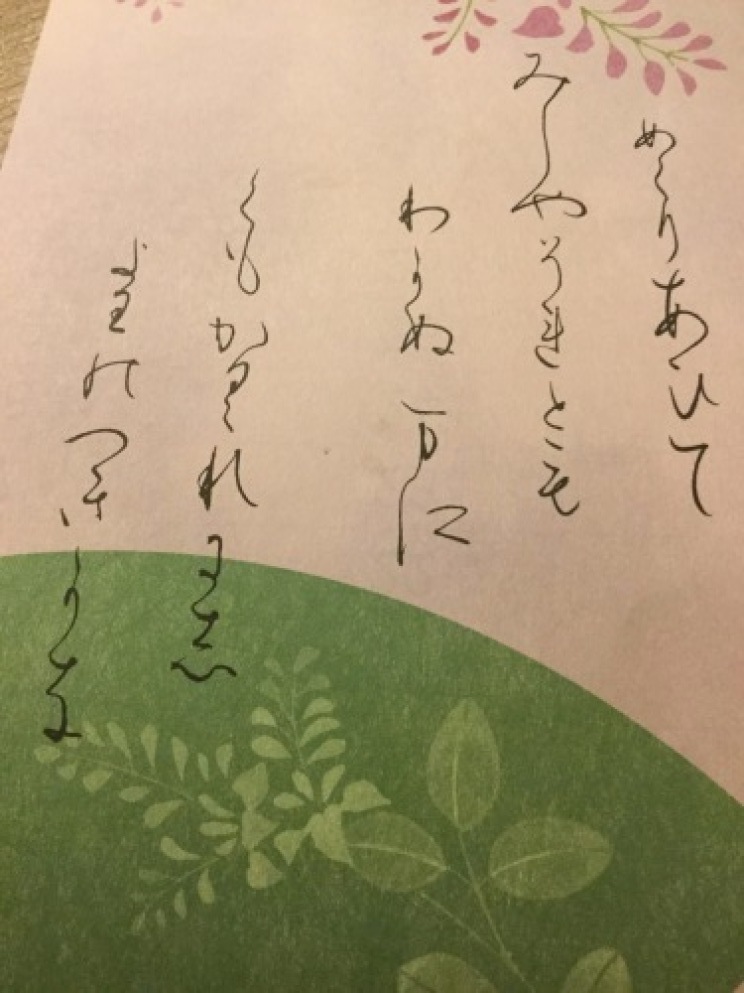 めくりあひて
みしやそれとも
わかぬまに
くもかくれにし
よはのつきかな